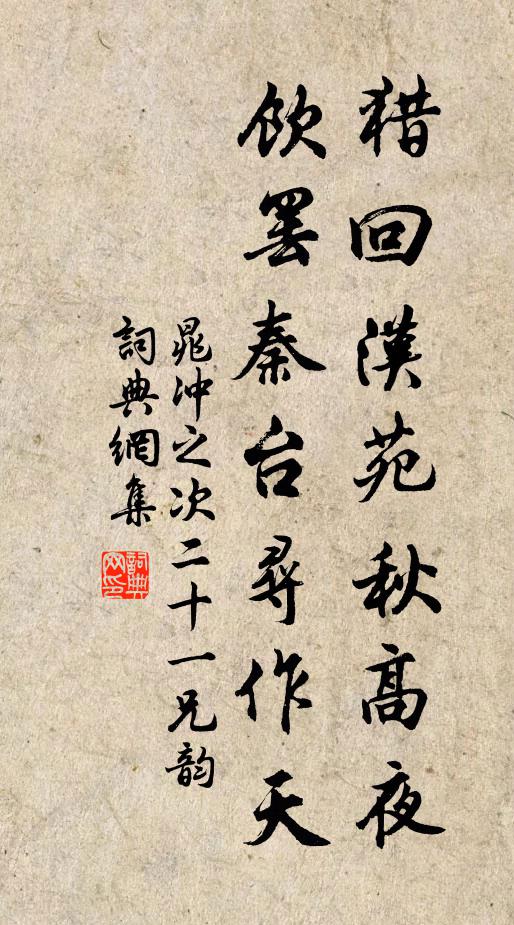 猎回漢苑秋高夜
飲罢秦台尋作天
晁冲之次二十一兄韵
詞典網集
詞典网印